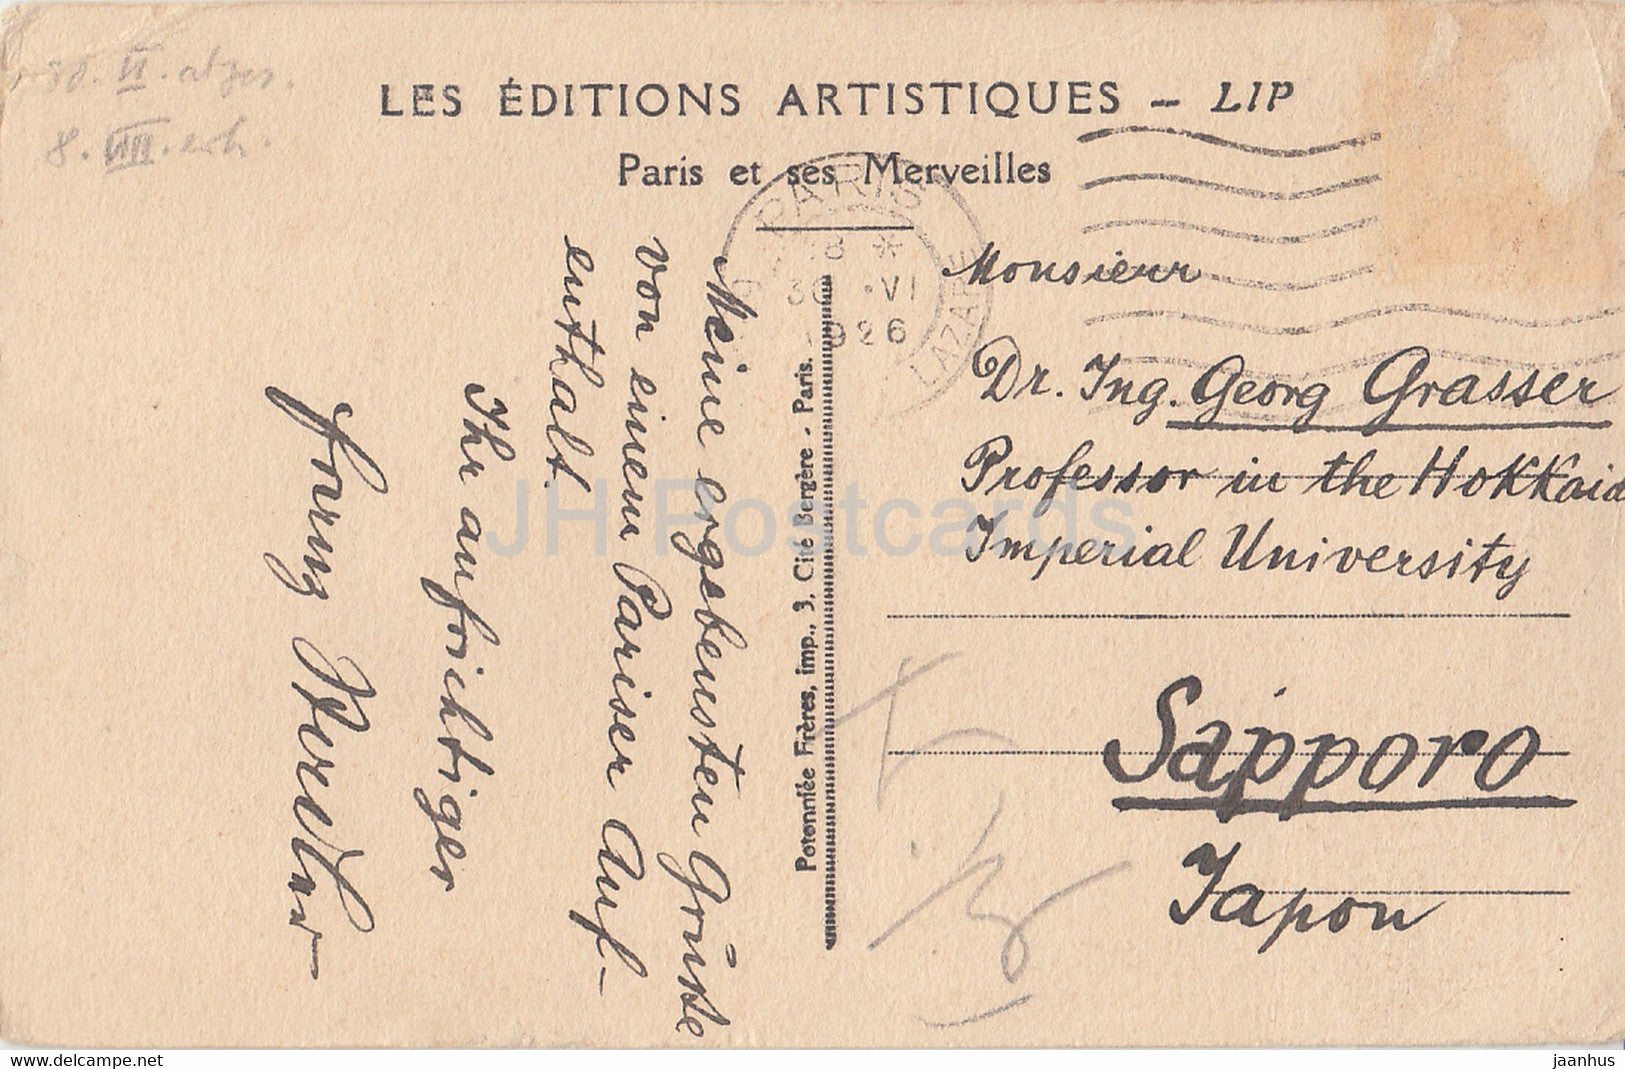 30. VI. abges.
8. VIII. erh.
LES ÉDITIONS ARTISTIQUES – LIP
Paris et ses Merveilles
PARIS
LAZARE
30 VI
1926
Monsieur
Dr. Ing. Georg Grasser
Professor in the Hokkaid
Imperial University
Sapporo
Japon
Potonniée Frères, imp., 3, Cité Bergère - Paris.
Meine ergebensten Grüsse
von einem Pariser Auf-
enthalt.
Ihr aufrichtiger
JH Postcards
delcampe.net
jaanhus